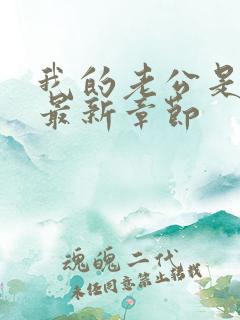 我的老公是
最新章节
魂魄二代
未经同意禁止转载